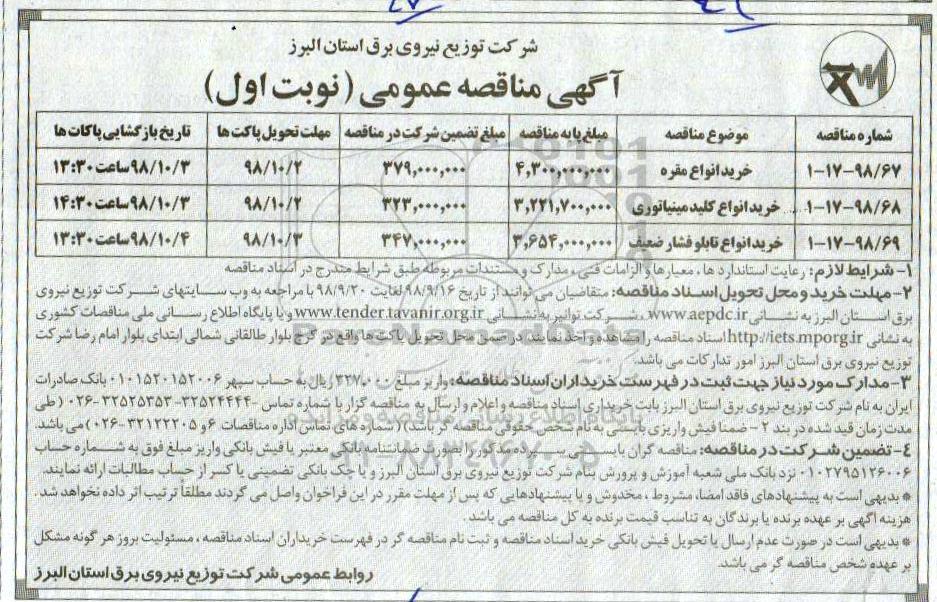 شرکت توزیع نیروی برق استان البرز
آگهی مناقصه عمومی (نوبت اول)
شماره مناقصه موضوع مناقصه مبلغ پایه مناقصه مبلغ تضمین شرکت در مناقصه مهلت تحویل پاکت ها تاریخ بازگشایی پاکات ها
۱-۱۷-۹۸/۶۷ خرید انواع مقره ۴,۳۰۰,۰۰۰,۰۰۰ ۳۷۹,۰۰۰,۰۰۰ ۹۸/۱۰/۲ ۹۸/۱۰/۳ ساعت ۱۳:۳۰
۱-۱۷-۹۸/۶۸ خرید انواع کلید مینیاتوری ۳,۲۲۱,۷۰۰,۰۰۰ ۳۲۳,۰۰۰,۰۰۰ ۹۸/۱۰/۲ ۹۸/۱۰/۳ ساعت ۱۴:۳۰
۱-۱۷-۹۸/۶۹ خرید انواع تابلو فشار ضعیف ۳,۶۵۴,۰۰۰,۰۰۰ ۳۴۷,۰۰۰,۰۰۰ ۹۸/۱۰/۳ ۹۸/۱۰/۴ ساعت ۱۳:۳۰
۱- شرایط لازم: رعایت استاندارد ها ، معیارها و الزامات فنی ، مدارک و مستندات مربوطه طبق شرایط مندرج در اسناد مناقصه
۲- مهلت خرید و محل تحویل اسناد مناقصه: متقاضیان می توانند از تاریخ ۹۸/۹/۱۶ لغایت ۹۸/۹/۲۰ با مراجعه به وب سایتهای شرکت توزیع نیروی
برق استان البرز به نشانی www.aepdc.ir ، شرکت توانیر به نشانی www.tender.tavanir.org.ir و یا پایگاه اطلاع رسانی ملی مناقصات کشوری
به نشانی http://iets.mporg.ir اسناد مناقصه را مشاهده و اخذ نمایند. در ضمن محل تحویل پاکت ها واقع در کرج بلوار طالقانی شمالی ابتدای بلوار امام رضا شرکت
توزیع نیروی برق استان البرز امور تدارکات می باشد.
۳- مدارک مورد نیاز جهت ثبت در فهرست خریداران اسناد مناقصه: واریز مبلغ ۳۲۷,۰۰۰ ریال به حساب سپهر ۰۱۰۱۵۲۰۱۵۲۰۰۶ بانک صادرات
ایران به نام شرکت توزیع نیروی برق استان البرز بابت خریداری اسناد مناقصه و اعلام و ارسال به مناقصه گزار با شماره تماس -۳۲۵۲۴۴۴۴-۳۲۵۲۵۳۵۳-۰۲۶ (طی
مدت زمان قید شده در بند ۲ - ضمنا فیش واریزی بایستی به نام شخص حقوقی مناقصه گر باشد) (شماره های تماس اداره مناقصات ۶ و ۳۲۱۲۲۲۰۵-۰۲۶) می باشد.
۴- تضمین شرکت در مناقصه: مناقصه گران بایستی سپرده مذکور را بصورت ضمانتنامه بانکی معتبر یا فیش بانکی واریز مبلغ فوق به شماره حساب
۰۱۰۲۷۹۵۱۲۶۰۰۶ نزد بانک ملی شعبه آموزش و پرورش بنام شرکت توزیع نیروی برق استان البرز و یا چک بانکی تضمینی یا کسر از حساب مطالبات ارائه نمایند.
* بدیهی است به پیشنهادهای فاقد امضا، مشروط ، مخدوش و یا پیشنهادهایی که پس از مهلت مقرر در این فراخوان واصل می گردند مطلقاً ترتیب اثر داده نخواهد شد.
هزینه آگهی بر عهده برنده یا برندگان به تناسب قیمت برنده به کل مناقصه می باشد .
* بدیهی است در صورت عدم ارسال یا تحویل فیش بانکی خرید اسناد مناقصه و ثبت نام مناقصه گر در فهرست خریداران اسناد مناقصه ، مسئولیت بروز هر گونه مشکل
بر عهده شخص مناقصه گر می باشد.
روابط عمومی شرکت توزیع نیروی برق استان البرز